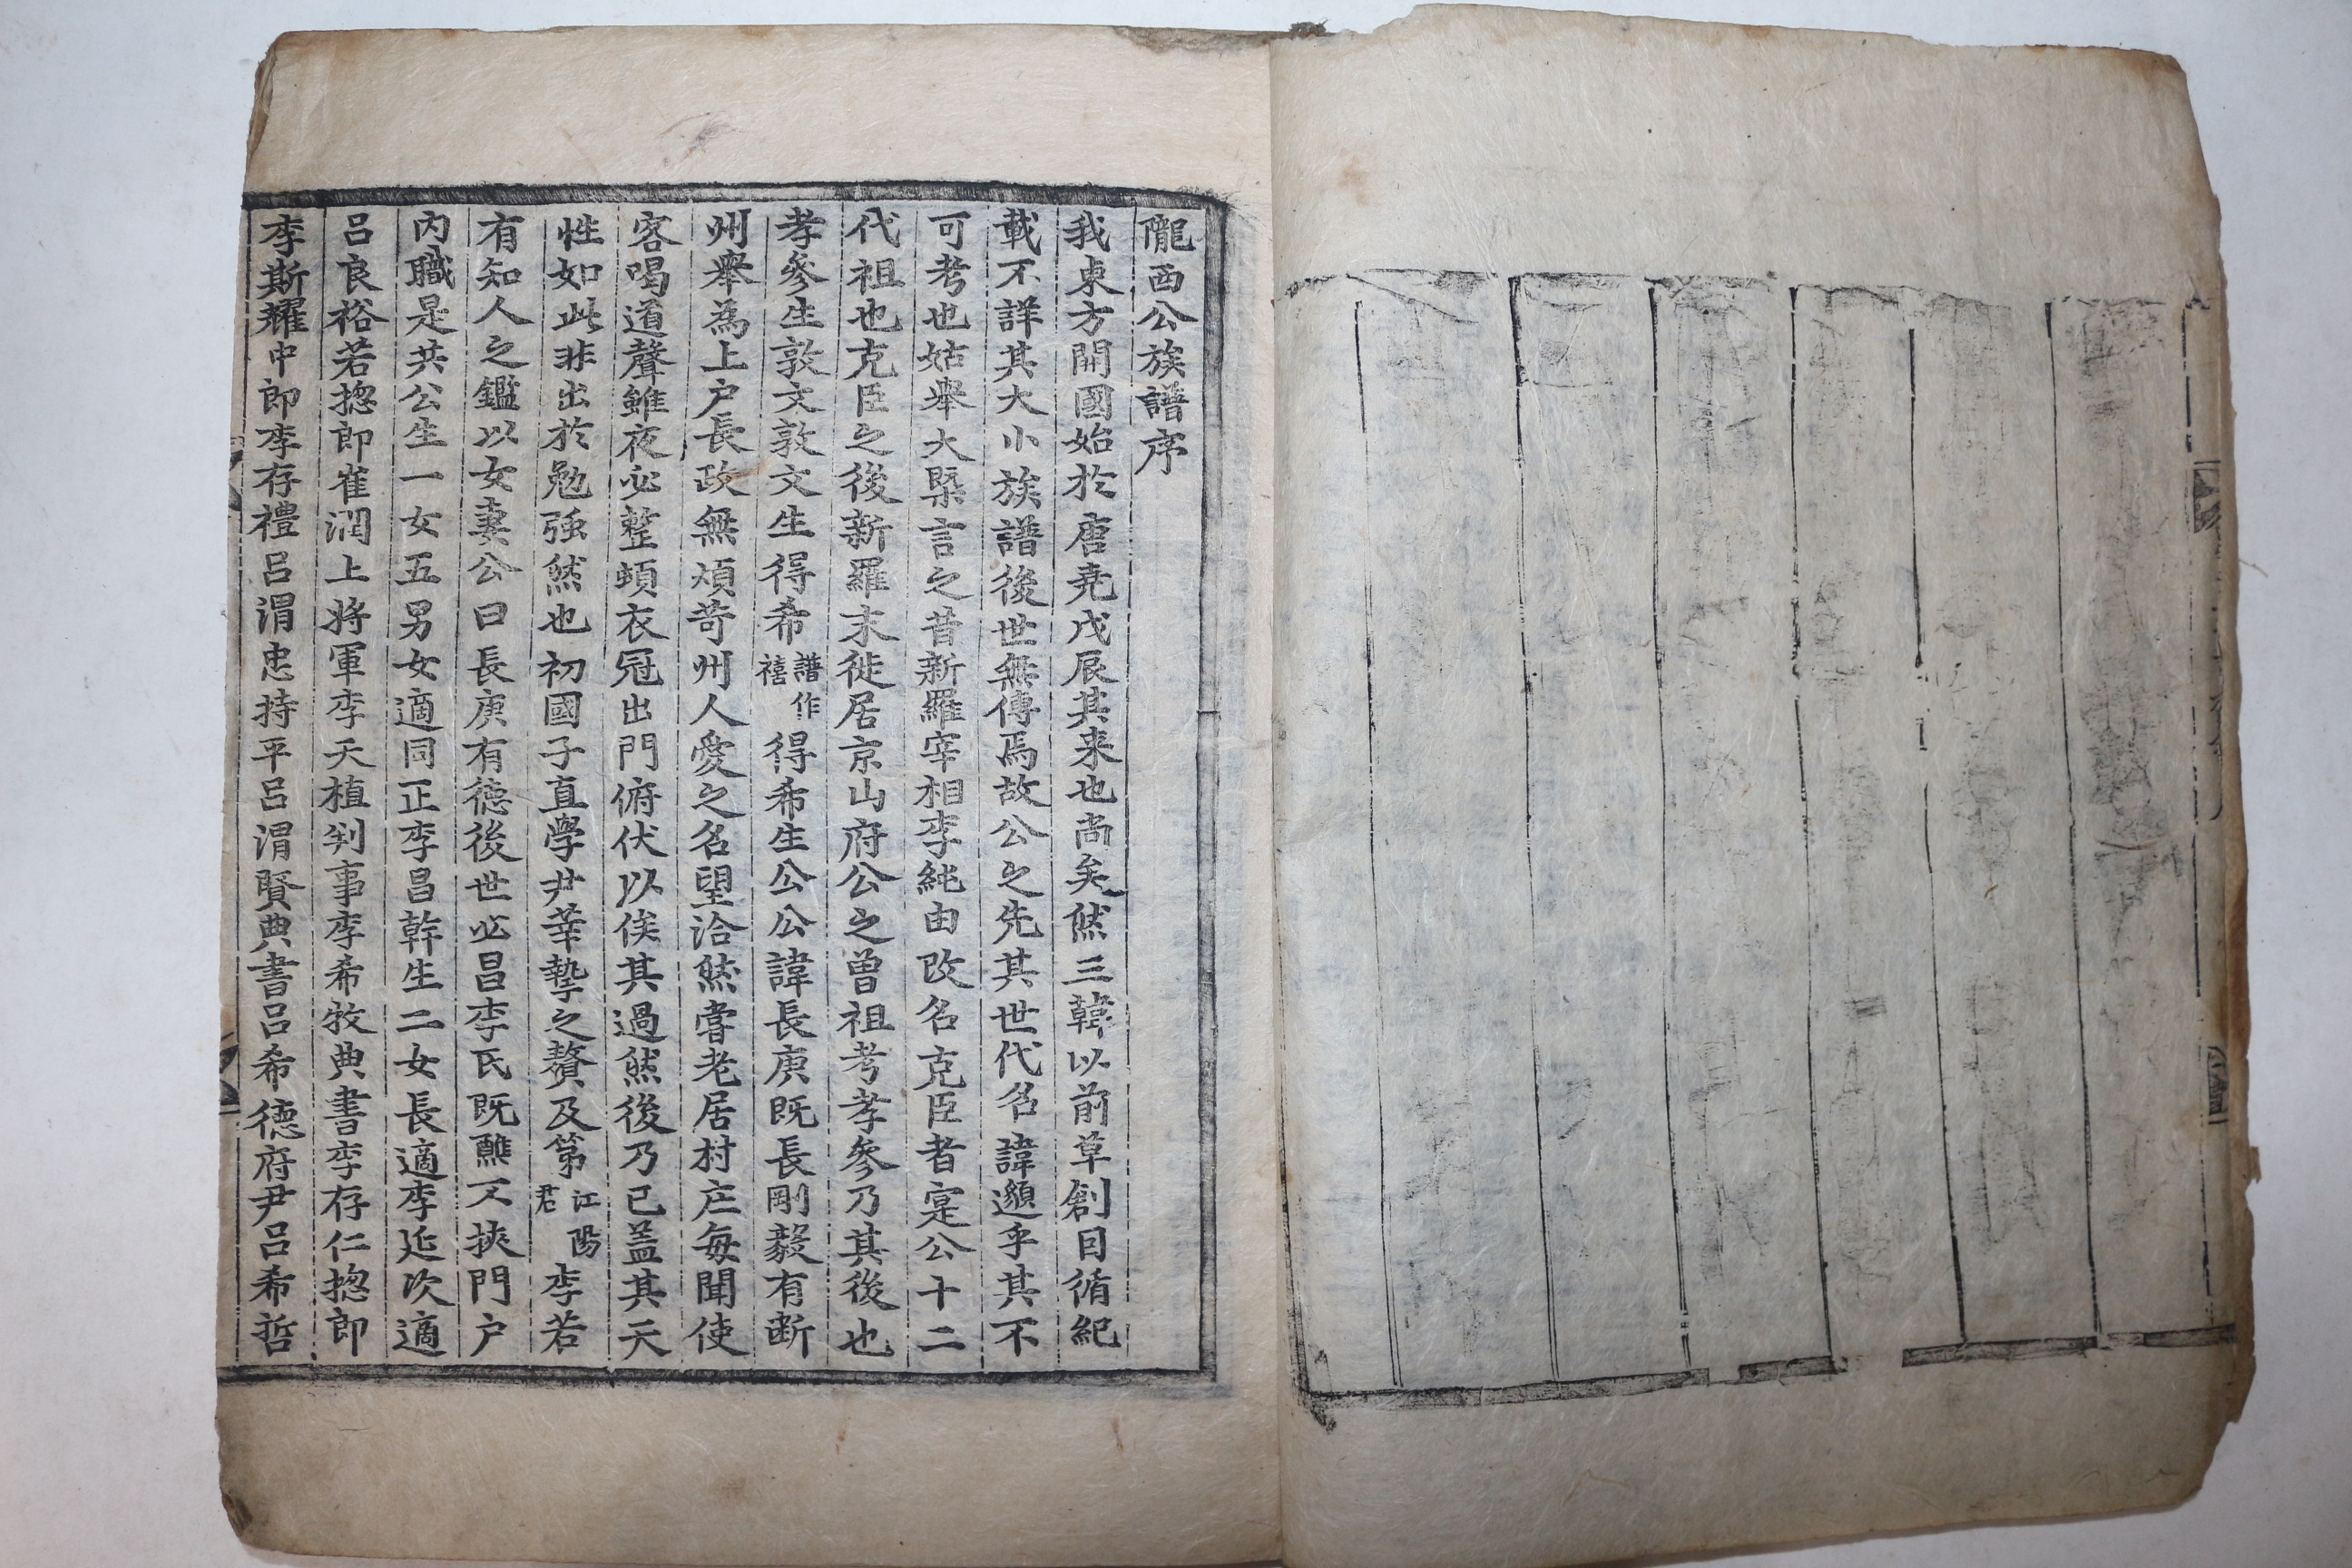 隴西公族譜序
我東方開國始於唐堯戊辰其来也尚矣然三韓以前草創目循紀
載不詳其大小族譜後世無傳焉故公之先其世代名諱邈乎其不
可考也姑舉大槩言之昔新羅宰相李純由改名克臣者寔公十二
代祖也克臣之後新羅末徙居京山府公之曾祖考孝參乃其後也
孝參生敦文敦文生得希譜作禧得希生公公諱長庚既長剛毅有断
州舉為上户長政無煩苛州人愛之名望洽然嘗老居村庄每聞使
客喝道聲雖夜必整頓衣冠出門俯伏以俟其過然後乃已盖其天
性如此非出於勉强然也初國子直學尹莘摯之贅及第江陽君李若
有知人之鑑以女妻公曰長庚有德後世必昌李氏既醮不挾門户
內職是共公生一女五男女適同正李昌幹生二女長適李延次適
呂良裕若摠郎崔潤上將軍李天植判事李希牧典書李存仁摠郎
李斯耀中郎李存禮呂渭忠持平呂渭賢典書呂希德府尹呂希哲